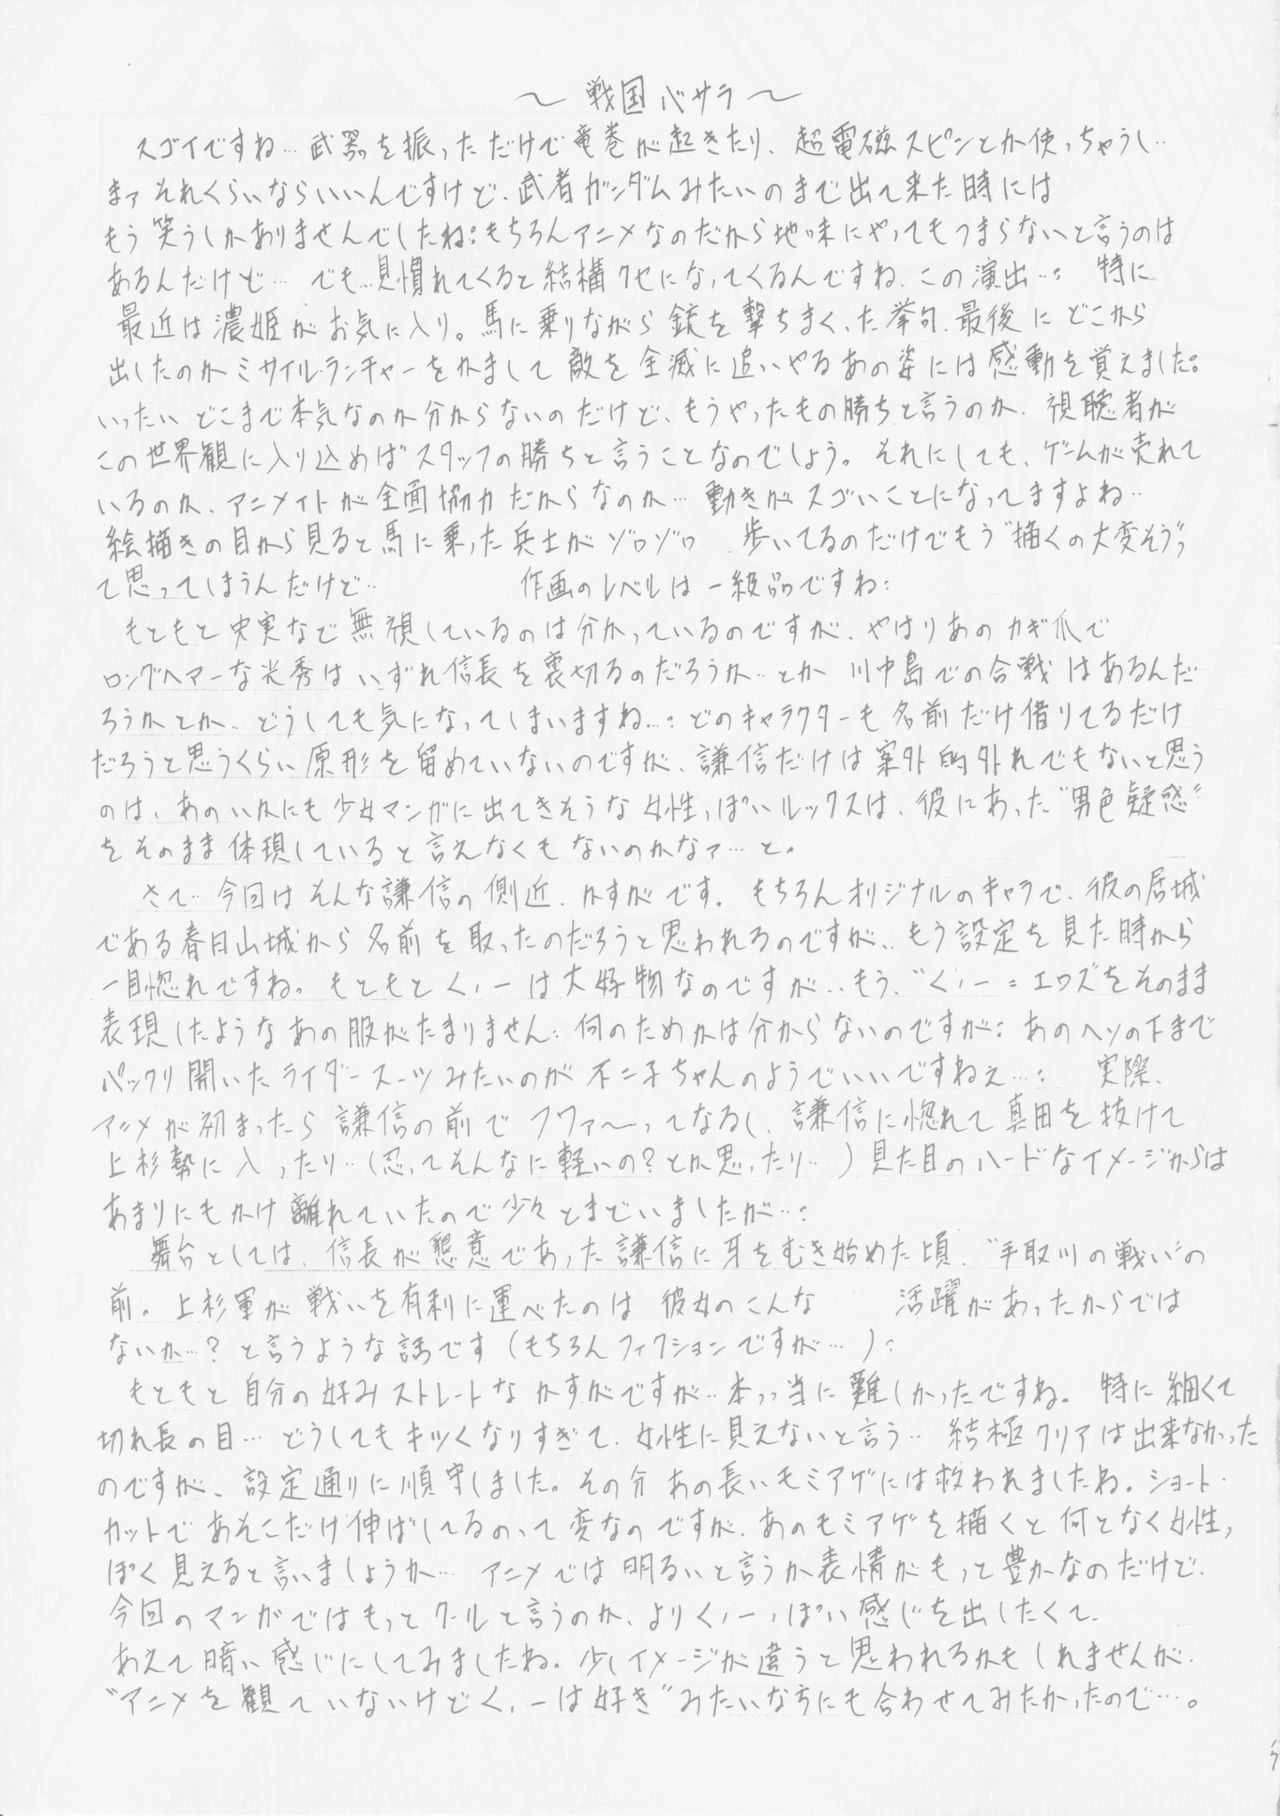 ～戦国バサラ～
スゴイですね… 武器を振っただけで竜巻が起きたり、超電磁スピンとか使っちゃうし…
まァそれくらいならいいんですけど、武者ガンダムみたいのまで出て来た時には
もう笑うしかありませんでしたね: もちろんアニメなのだから地味にやってもつまらないと言うのは
あるんだけど… でも…見慣れてくると結構クセになってくるんですね、この演出…: 特に
最近は濃姫がお気に入り。馬に乗りながら銃を撃ちまくった挙句、最後にどこから
出したのかミサイル・ランチャーをかまして敵を全滅に追いやるあの姿には感動を覚えました。
いったいどこまで本気なのか分からないのだけど、もうやったもの勝ちと言うのか、視聴者が
この世界観に入り込めばスタッフの勝ちと言うことなのでしょう。それにしても、ゲームが売れて
いるのか、アニメイトが全面協力だからなのか… 動きがスゴいことになってますよね…
絵描きの目から見ると馬に乗った兵士がゾロゾロ 歩いてるのだけでもう“描くの大変そう”
て思ってしまうんだけど… 作画のレベルは一級品ですね:
もともと史実など無視しているのは分かっているのですが、やはりあのカギ爪で
ロングヘアーな光秀はいずれ信長を裏切るのだろうか…とか 川中島での合戦はあるんだ
ろうかとか… どうしても気になってしまいますね…: どのキャラクターも名前だけ借りてるだけ
だろうと思うくらい原形を留めていないのですが、謙信だけは案外的外れでもないと思う
のは、あのいかにも少女マンガに出てきそうな女性っぽいルックスは、彼にあった“男色疑惑”
をそのまま体現していると言えなくもないのかなァ…と。
さて… 今回はそんな謙信の側近、かすがです。もちろんオリジナルのキャラで、彼の居城
である春日山城から名前を取ったのだろうと思われるのですが… もう設定を見た時から
一目惚れですね。もともとくノ一は大好物なのですが… もう、“くノ一=エロス”をそのまま
表現したようなあの服がたまりません: 何のためかは分からないのですが: あのヘソの下まで
パックリ開いたライダースーツみたいのが不二子ちゃんのようでいいですねぇ…: 実際、
アニメが初まったら謙信の前でフワァ～ってなるし、謙信に惚れて真田を抜けて
上杉勢に入ったり…(忍ってそんなに軽いの？とか思ったり…) 見た目のハードなイメージからは
あまりにもかけ離れていたので少々とまどいましたが…:
舞台としては、信長が懇意であった謙信に牙をむき始めた頃、“手取川の戦い”の
前。上杉軍が戦いを有利に運べたのは彼女のこんな 活躍があったからでは
ないか…？と言うような話です(もちろんフィクションですが…):
もともと自分の好みストレートなかすがですが… 本っ当に難しかったですね。特に細くて
切れ長の目… どうしてもキツくなりすぎて、女性に見えないと言う… 結極クリアは出来なかった
のですが、設定通りに順守しました。その分あの長いモミアゲには救われましたね。ショート・
カットであそこだけ伸ばしてるのって変なのですが、あのモミアゲを描くと何となく女性っ
ぽく見えると言いましょうか… アニメでは明るいと言うか表情がもっと豊かなのだけど、
今回のマンガではもっとクールと言うのか、よりくノ一っぽい感じを出したくて、
あえて暗い感じにしてみましたね。少しイメージが違うと思われるかもしれませんが、
“アニメを観ていないけどくノ一は好き”みたいな方にも合わせてみたかったので…。